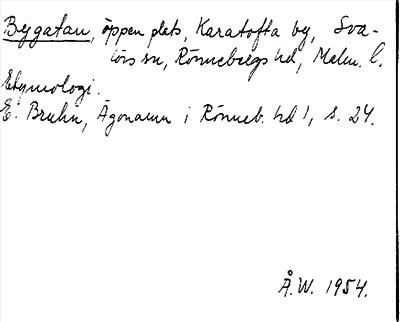 Bygatan, öppen plats, Karatofta by, Sva-
lövs sn, Rönnebergs hd, Malm. l.
Etymologi.
E. Bruhn, Ägonamn i Rönneb. hd 1, s. 24.
Å.W. 1954.